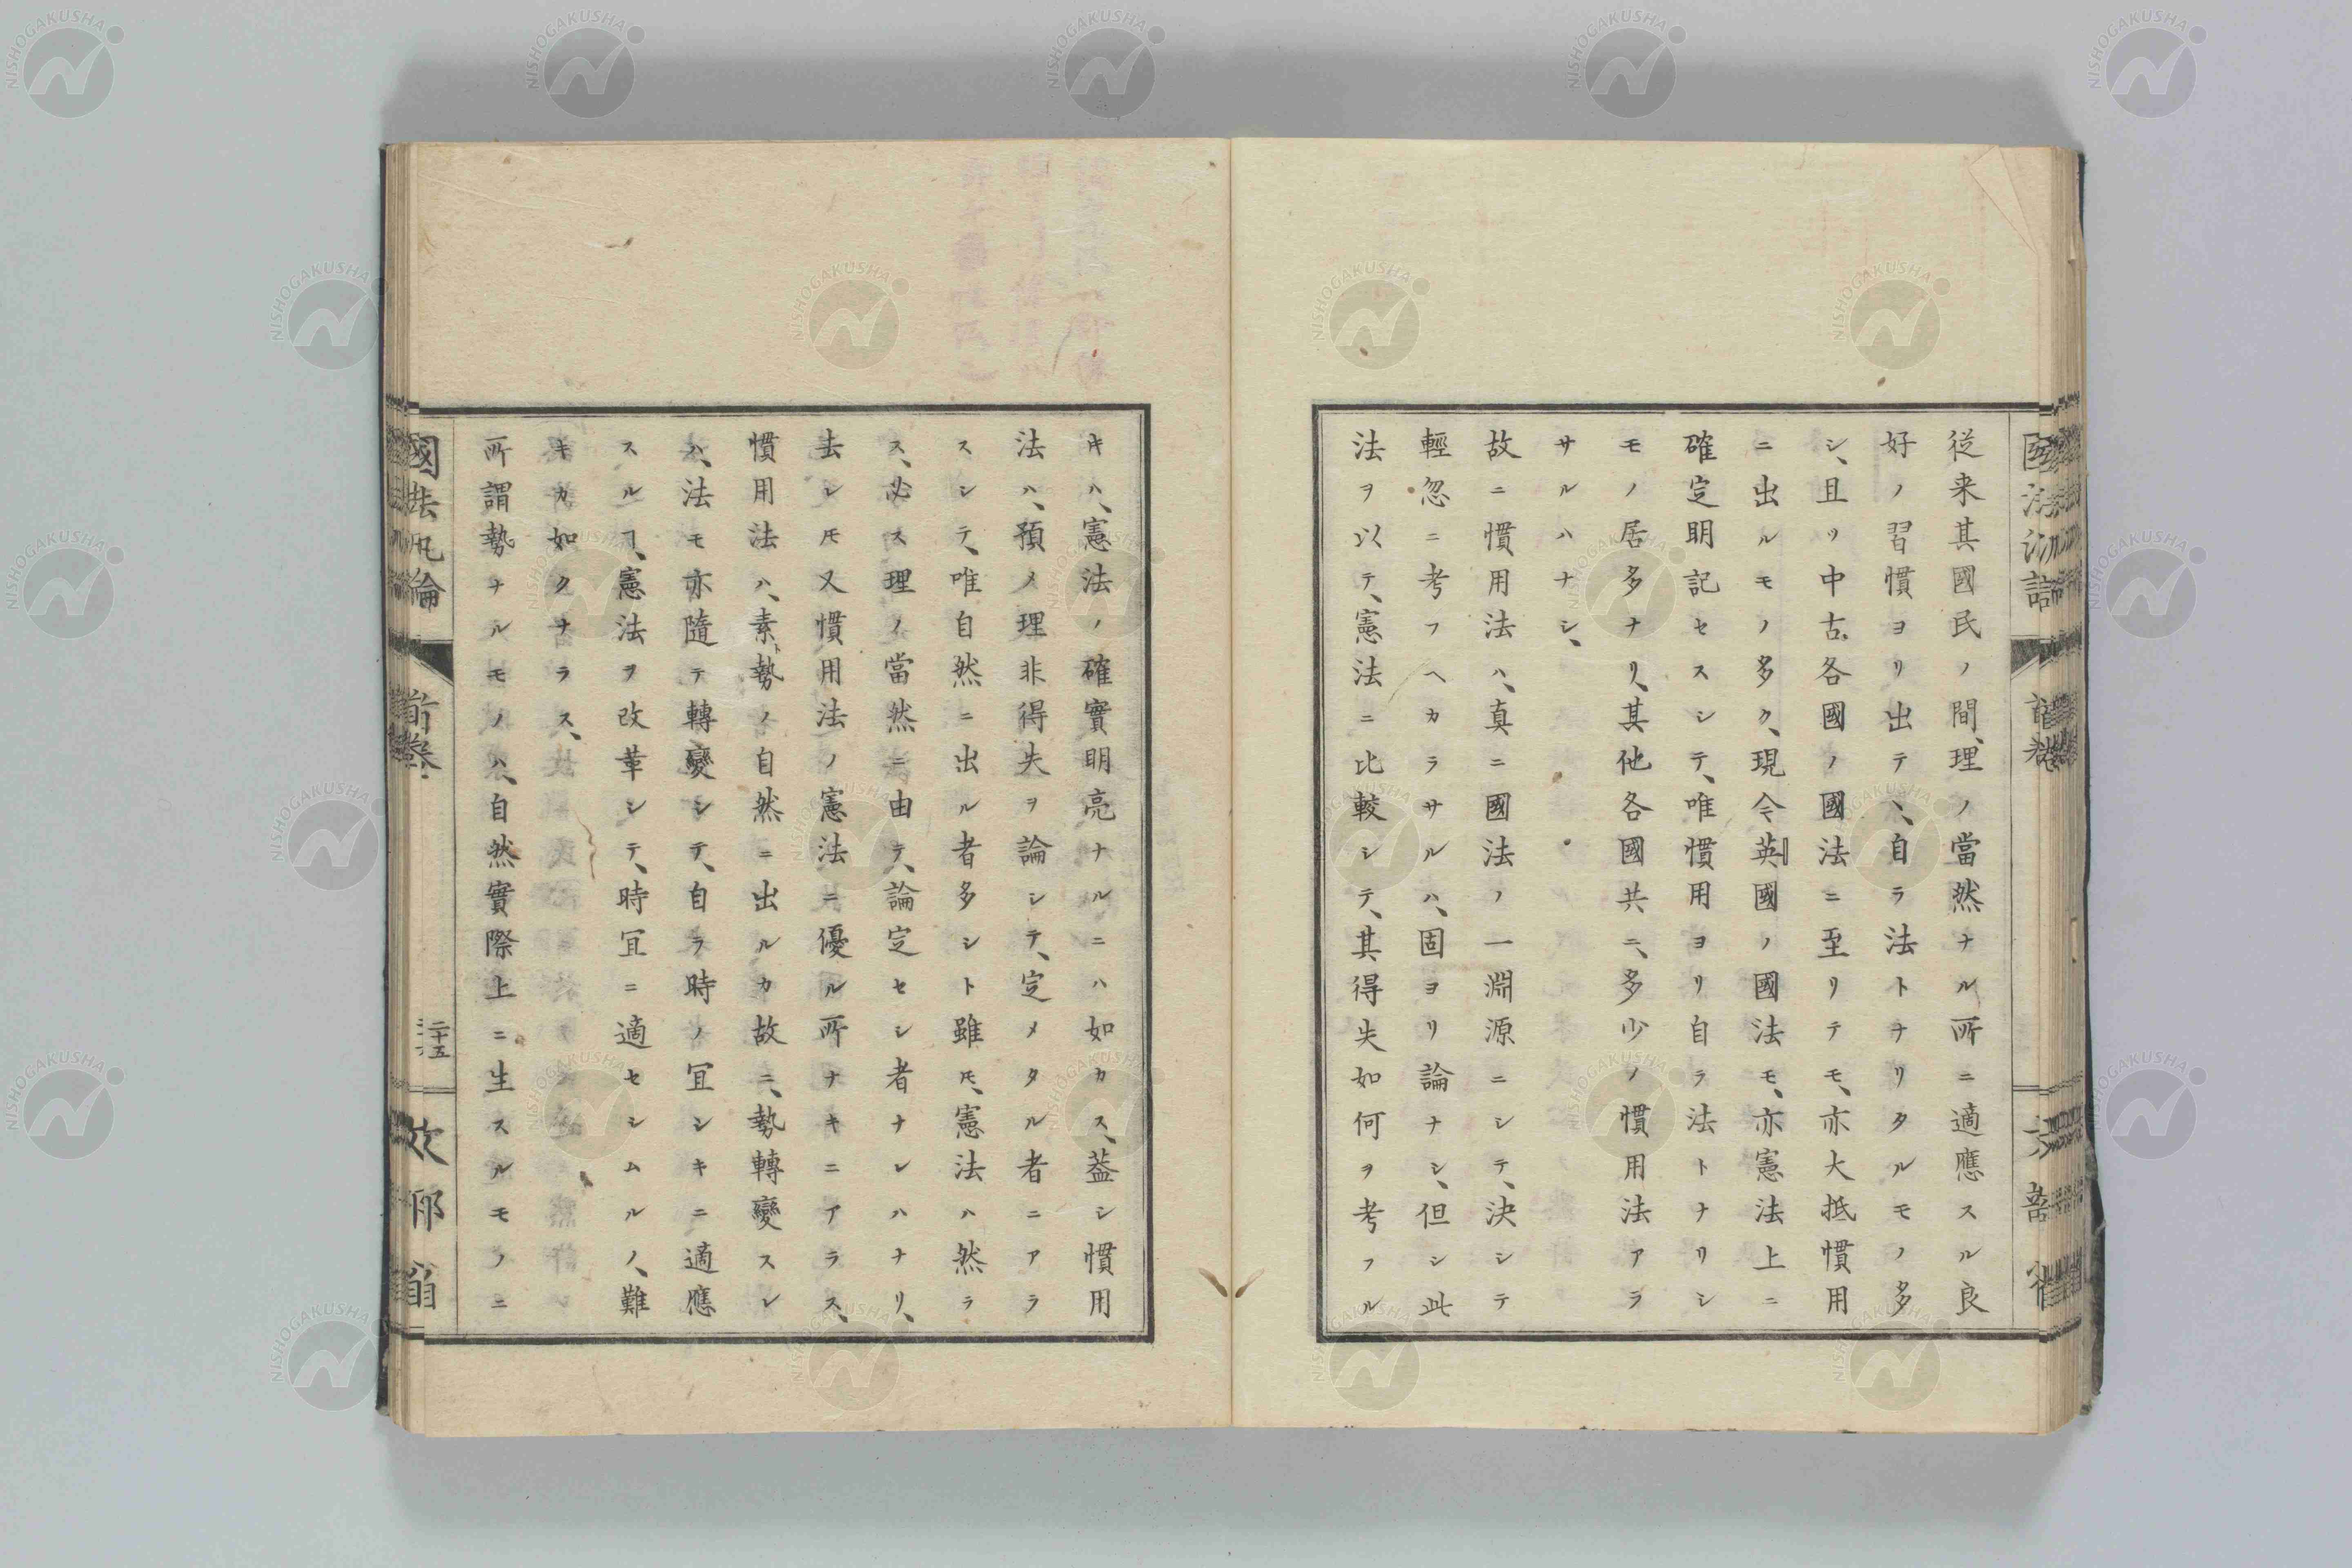 従来其國民ノ間、理ノ當然ナル所ニ適應スル良
好ノ習慣ヨリ出テ、自ラ法トナリタルモノ多
シ、且ツ中古、各國ノ國法ニ至リテモ、亦大抵慣用
ニ出ルモノ多ク、現今英國ノ國法モ、亦憲法上ニ
確定明記セスシテ、唯慣用ヨリ自ラ法トナリシ
モノ居多ナリ、其他各國共ニ、多少ノ慣用法アラ
サルハナシ、
故ニ慣用法ハ、真ニ國法ノ一淵源ニシテ、決シテ
輕忽ニ考フヘカラサルハ、固ヨリ論ナシ、但シ此
法ヲ以テ、憲法ニ比較シテ、其得失如何ヲ考フル
キハ、憲法ノ確實明亮ナルニハ如カス、蓋シ慣用
法ハ、預メ理非得失ヲ論シテ、定メタル者ニアラ
スシテ、唯自然ニ出ル者多シト雖モ、憲法ハ然ラ
ス、必ス理ノ當然ニ由テ、論定セシ者ナレハナリ、
去レモ又慣用法ノ憲法ニ優ル所ナキニアラス、
慣用法ハ、素勢ノ自然ニ出ルカ故ニ、勢轉變スレ
ハ、法モ亦隨テ轉變シテ、自ラ時ノ宜シキニ適應
スルヿ、憲法ヲ改革シテ、時宜ニ適セシムルノ、難
キカ如クナラス、
所謂勢ナルモノハ、自然實際上ニ生スルモノニ
國法汎論
首卷
二十五
文部省
NISHOGAKUSHA